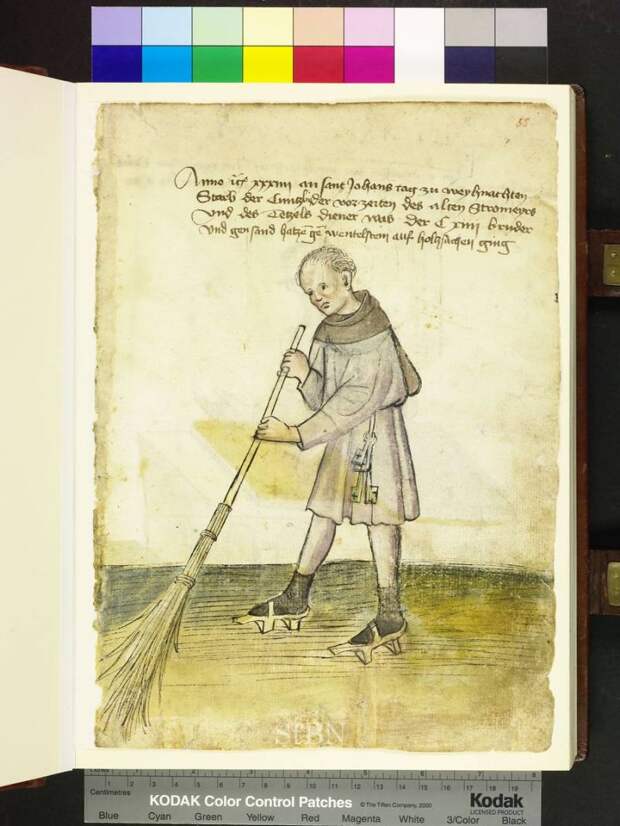 58
Anno iiijc xxxiiii an sant Johans tag zu weyhnachten
Starb der Cuntz der vor zeiten des alten Stromeyrs
Und des Tetzels diener was Der C xiiii bruder
Und gen sand gen wentelstein auf holtz ging
StBN
Centimetres
1 2 3 4 5 6 7 8 9 10 11 12 13 14 15 16 17 18 19
KODAK Color Control Patches © The Tiffen Company, 2000 Kodak
LICENSED PRODUCT
Blue Cyan Green Yellow Red Magenta White 3/Color Black